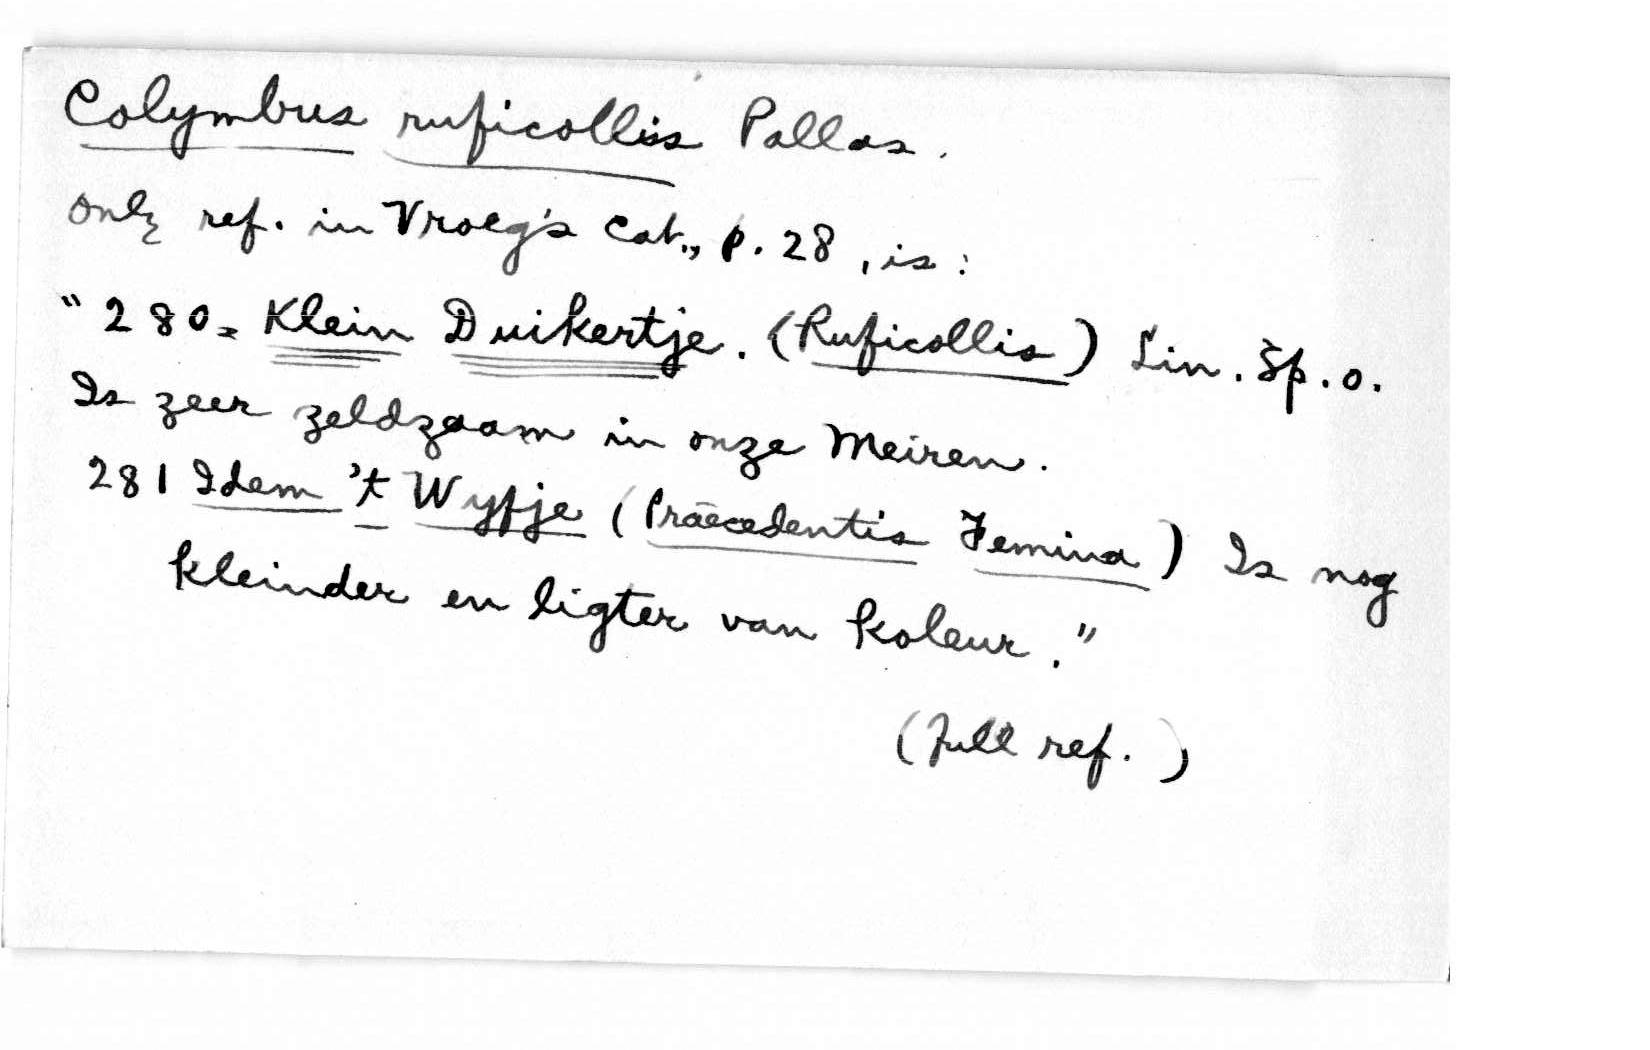 Colymbus ruficollis Pallas.
only ref. in Vroeg's Cat., p. 28, is:
"280. Klein Duikertje. (Ruficollis) Lin. Sp. o.
Is zeer zeldzaam in onze Meiren.
281 Idem 't Wyfje (Praecedentis Femina) Is nog
kleinder en ligter van koleur."
(Full ref.)